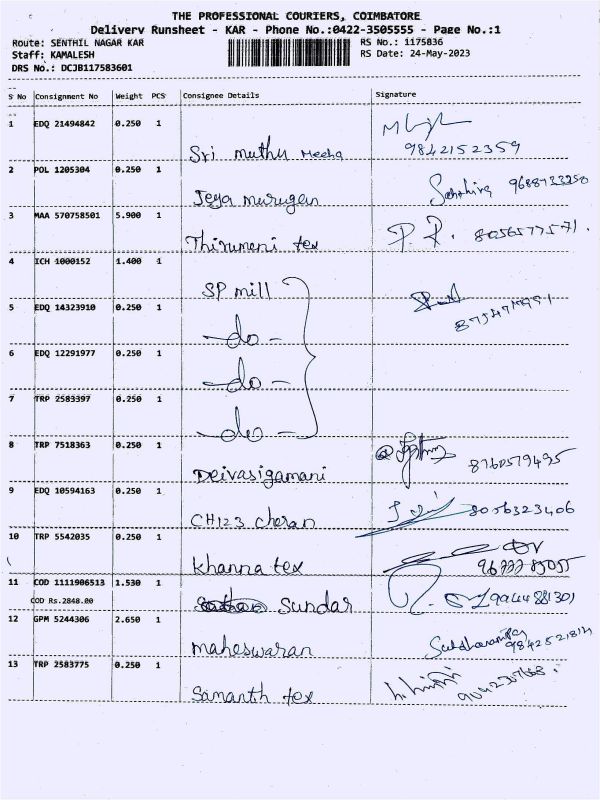 THE PROFESSIONAL COURIERS, COIMBATORE
Delivery Runsheet - KAR - Phone No.:0422-3505555 - Page No.:1
Route: SENTHIL NAGAR KAR
RS No.: 1175836
Staff: KAMALESH
RS Date: 24-May-2023
DRS No.: DCJB117583601
S No Consignment No Weight PCS Consignee Details Signature
1 EDQ 21494842 0.250 1
Sri muthu Meena 9842152359
2 POL 1205304 0.250 1
Jeya murugan
3 MAA 570758501 5.900 1
Thirumani tex P. P. 8056577571.
4 ICH 1000152 1.400 1
SP mill
5 EDQ 14323910 0.250 1
-do-
6 EDQ 12291977 0.250 1
-do-
7 TRP 2583397 0.250 1
-do-
8 TRP 7518363 0.250 1
Deivasigamani 8760579495
9 EDQ 10594163 0.250 1
CH123 cheran 8056323406
10 TRP 5542035 0.250 1
Khanna tex
11 COD 1111906513 1.530 1
COD Rs.2848.00
Sundar 9944881301
12 GPM 5244306 2.650 1
maheswaran
13 TRP 2583775 0.250 1
Samanth tex